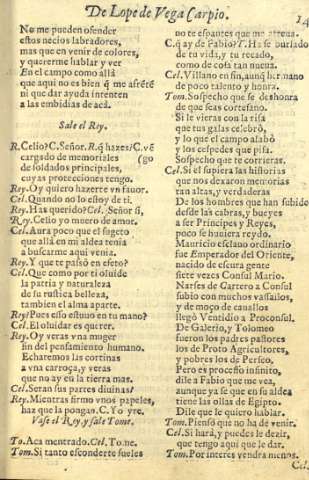 De Lope de Vega Carpio.
14
No me pueden ofender
estos necios labradores,
mas que en venir de colores,
y quererme hablar y ver
En el campo como allà
que aqui no es bien q̃ me afrẽtẽ
ni que dar ayuda intenten
a las embidias de acà.
Sale el Rey.
R. Celio? C. Señor. R. q̃ hazes? C. vẽ
cargado de memoriales (go
de soldados principales,
cuyas pretenciones tengo.
Rey. Oy quiero hazerte vn fauor.
Cel. Quando no lo estoy de ti.
Rey. Has querido? Cel. Señor si,
Rey. Celio yo muero de amor.
Cel. Aura poco que el sugeto
que allà en mi aldea tenia
a buscarme aqui venia.
Rey. Y que te passò en efeto?
Cel. Que como por ti oluide
la patria y naturaleza
de su rustica belleza,
tambien el alma aparte.
Rey. Pues esso estuuo en tu mano?
Cel. El oluidar es querer.
Rey. Oy veras vna muger
sin del pensamiento humano.
Echaremos las cortinas
a vna carroça, y veras
que no ay en la tierra mas.
Cel. Seran sus partes diuinas?
Rey. Mientras firmo vnos papeles,
haz que la pongan. C. Yo yre.
Vase el Rey, y sale Tome.
To. Aca mentrado. Cel. Tome.
Tom. Si tanto esconderte sueles
no te espantes que me atreua.
C. q̃ ay de Fabio? T. Hase burlado
de tu vida, y tu recado,
como de cosa tan nueua.
Cel. Villano en fin, aunq̃ hermano
de poco talento y honra.
Tom. Sospecho que se deshonra
de que seas cortesano.
Si le vieras con la risa
que tus galas celebrò,
y lo que el campo alabò
y los cespedes que pisa.
Sospecho que te corrieras.
Cel. Si el supiera las historias
que nos dexaron memorias
tan altas, y verdaderas
De los hombres que han subido
desde las cabras, y bueyes
a ser Principes y Reyes,
poco se huuiera reydo.
Mauricio esclauo ordinario
fue Emperador del Oriente,
nacido de escura gente
siete vezes Consul Mario.
Narses de Carrero a Consul
subio con muchos vassallos,
y de moço de cauallos
llegò Ventidio a Proconsul.
De Galerio, y Tolomeo
fueron los padres pastores
los de Proto Agricultores,
y pobres los de Perseo.
Pero es processo infinito,
dile a Fabio que me vea,
aunque ya se que en su aldea
tiene las ollas de Egipto.
Dile que le quiero hablar.
Tom. Piensò que no ha de venir.
Cel. Si harà, y puedes le dezir,
que tengo aqui que le dar.
Tom. Por interes vendra menos.
Cel.